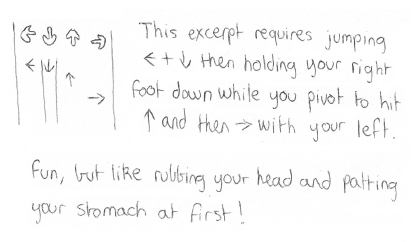 This excerpt requires jumping
← + ↓ then holding your right
foot down while you pivot to hit
↑ and then → with your left.
Fun, but like rubbing your head and patting
your stomach at first!